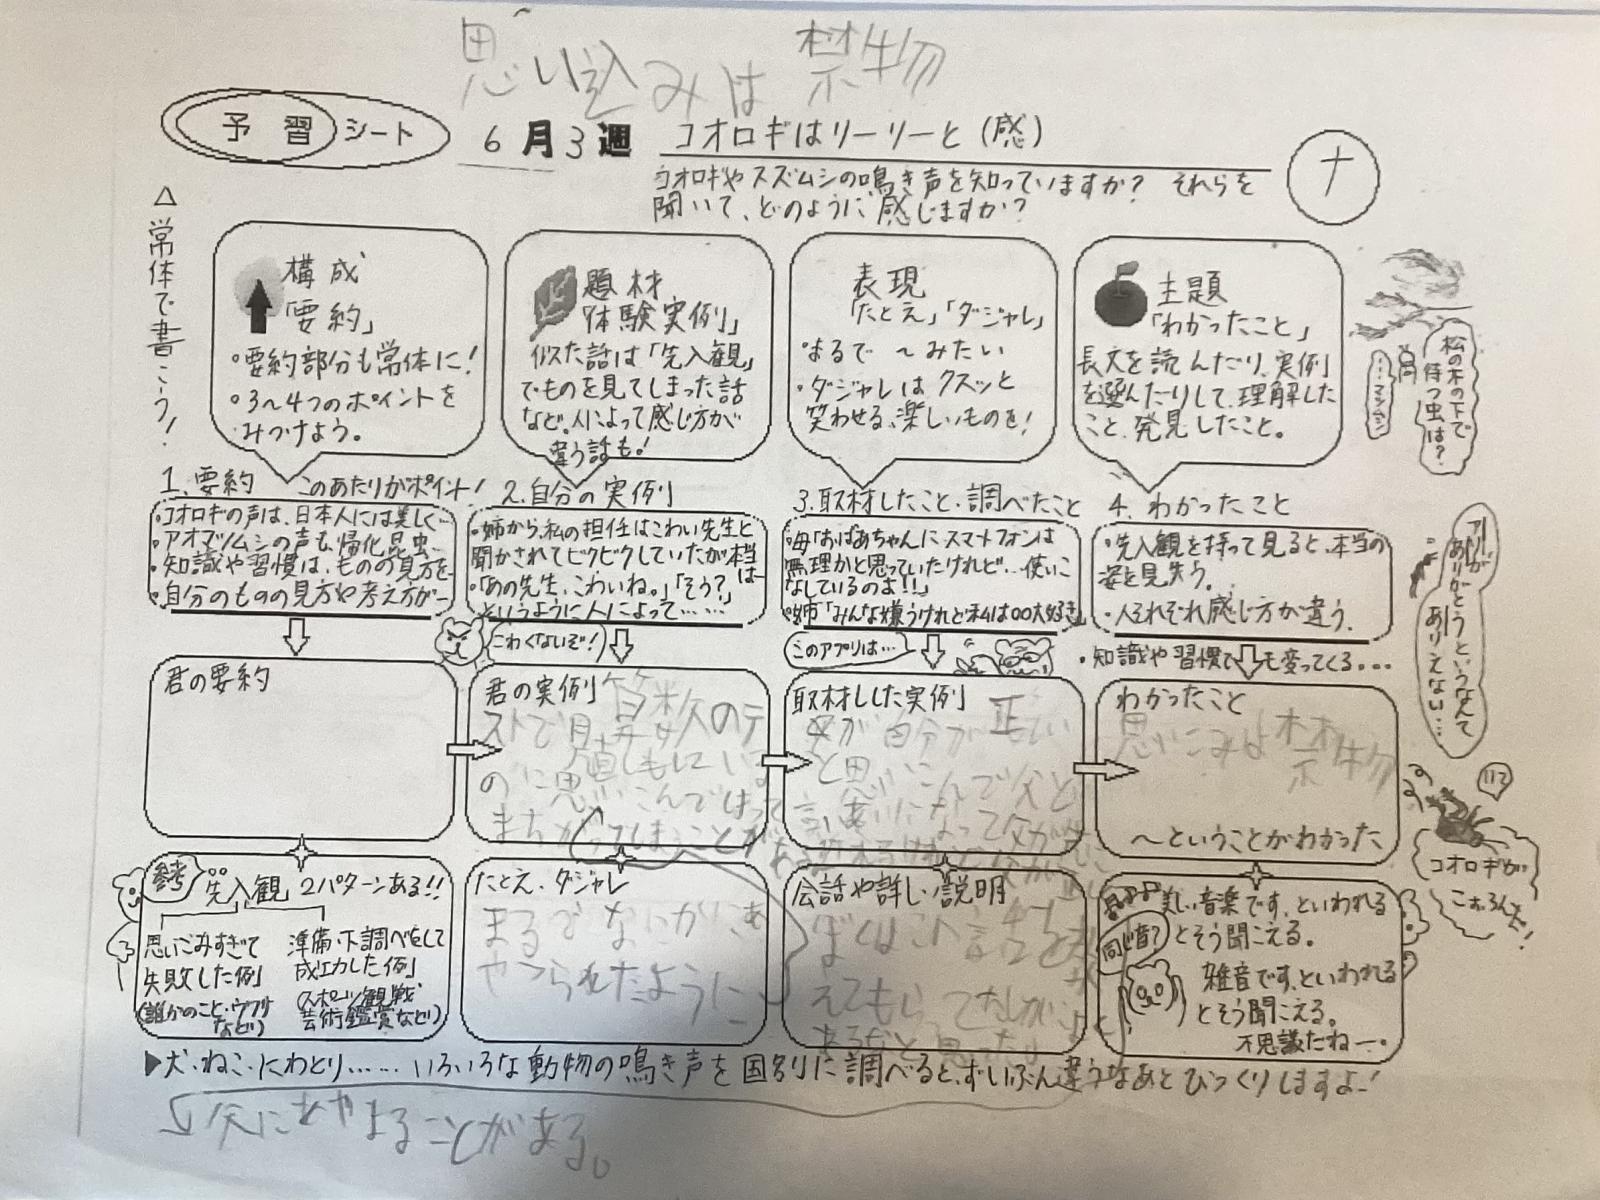 思い込みは禁物
予習シート
6月3週 コオロギはリーリーと(感)
ナ
コオロギやスズムシの鳴き声を知っていますか? それらを
聞いて、どのように感じますか?
△常体で書こう!
構成
「要約」
・要約部分も常体に!
・3〜4つのポイントを
みつけよう。
題材
「体験実例」
似た話は「先入観」
でものを見てしまった話
など。人によって感じ方が
違う話も!
表現
「たとえ」「ダジャレ」
・まるで 〜みたい
・ダジャレはクスッと
笑わせる、楽しいものを!
主題
「わかったこと」
長文を読んだり、実例
を選んだりして、理解した
こと、発見したこと。
松の木の下で
待つ虫は?
…マツムシ
1. 要約 このあたりがポイント!
・コオロギの声は、日本人には美しく…
・アオマツムシの声も、帰化昆虫…
・知識や習慣は、ものの見方を…
・自分のものの見方や考え方が…
2. 自分の実例
・姉から、私の担任はこわい先生と
聞かされてビクビクしていたが本当は…
・「あの先生、こわいね。」「そう?」
というように人によって……
3. 取材したこと・調べたこと
・母「おばあちゃんにスマートフォンは
無理かと思っていたけれど…使いこ
なしているのよ!!」
・姉「みんな嫌うけれど私は〇〇大好き」
4. わかったこと
・先入観を持って見ると、本当の
姿を見失う。
・人それぞれ感じ方が違う。
・知識や習慣でも変ってくる…
アリが
ありがとうというなんて
ありえない…
こわくないぞ!
このアプリは…
君の要約
君の実例 算数のテ
ストで
のに思いこんで
まちがってしまうことが
取材した実例
母が自分が正しい
と思いこんで父と
言い合いになって
わかったこと
思いこみは禁物
〜ということがわかった
コオロギが
こおろんだ!
参考
先入観 2パターンある!!
思いこみすぎて
失敗した例
(誰かのこと・ウワサ
など)
準備・下調べをして
成功した例
(スポーツ観戦
芸術鑑賞など)
たとえ・ダジャレ
まるでなにかにあ
やつられたように
会話や詳しい説明
ぼくはこの話を
えてもら
なと思った」
美しい音楽です、といわれる
とそう聞こえる。
同じ音?
雑音です、といわれる
とそう聞こえる。
不思議だねー。
▶犬・ねこ・にわとり……いろいろな動物の鳴き声を国別に調べると、ずいぶん違うなあとびっくりしますよ!
父にあやまることがある。